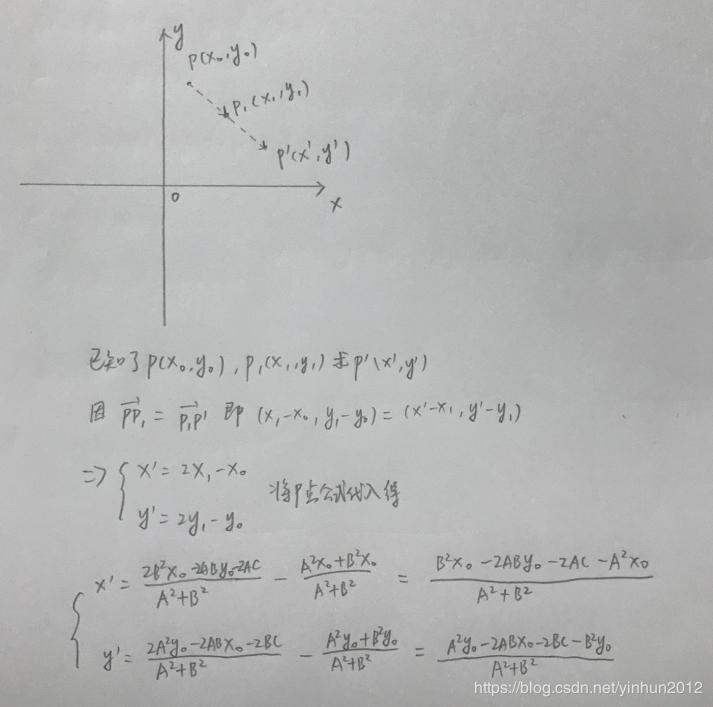 y
P(x₀,y₀)
P₁(x₁,y₁)
P'(x',y')
0
x
已知了P(x₀,y₀),P₁(x₁,y₁)求P'(x',y')
因 \overrightarrow{PP₁} = \overrightarrow{P₁P'} 即 (x₁-x₀, y₁-y₀) = (x'-x₁, y'-y₁)
=> { x' = 2x₁-x₀
y' = 2y₁-y₀ 将P点公式代入得
{ x' = \frac{2B²x₀-2ABy₀-2AC}{A²+B²} - \frac{A²x₀+B²x₀}{A²+B²} = \frac{B²x₀-2ABy₀-2AC-A²x₀}{A²+B²}
y' = \frac{2A²y₀-2ABx₀-2BC}{A²+B²} - \frac{A²y₀+B²y₀}{A²+B²} = \frac{A²y₀-2ABx₀-2BC-B²y₀}{A²+B²}
https://blog.csdn.net/yinhun2012